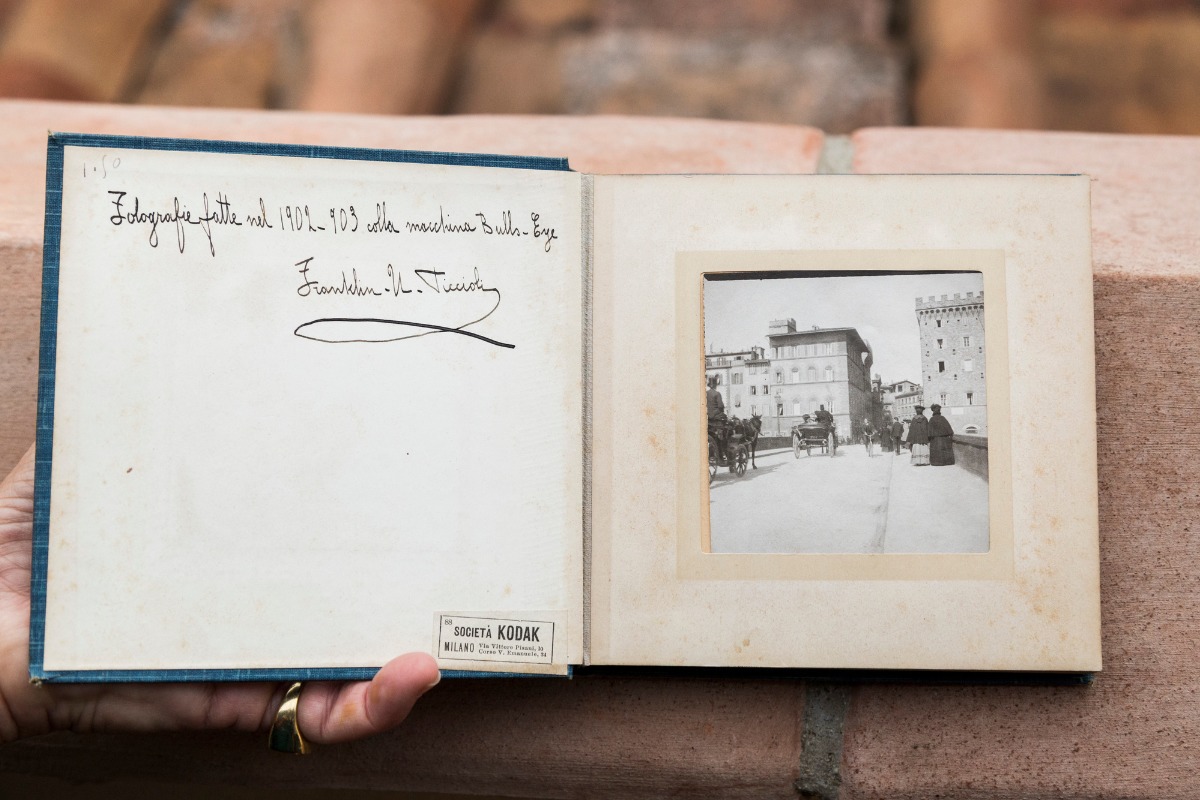 1.50
Fotografie fatte nel 1902-903 colla macchina Bulls-Eye
Franklin - U -
88
SOCIETÀ KODAK
MILANO Via Vittore Pisani, 10
Corso V. Emanuele, 34